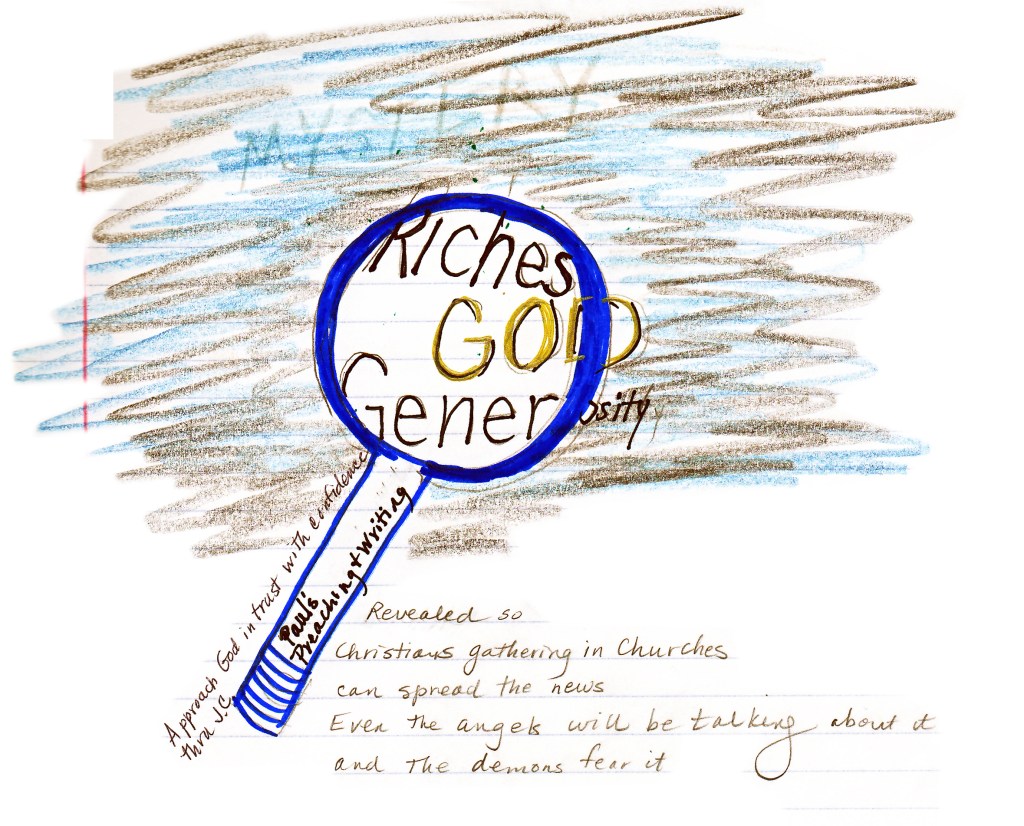 MYSTERY
Riches
GOD
Generosity
Approach God in trust with confidence
thru J.C.
Paul's
Preaching + Writing
Revealed so
Christians gathering in Churches
can spread the news
Even the angels will be talking about it
and the demons fear it